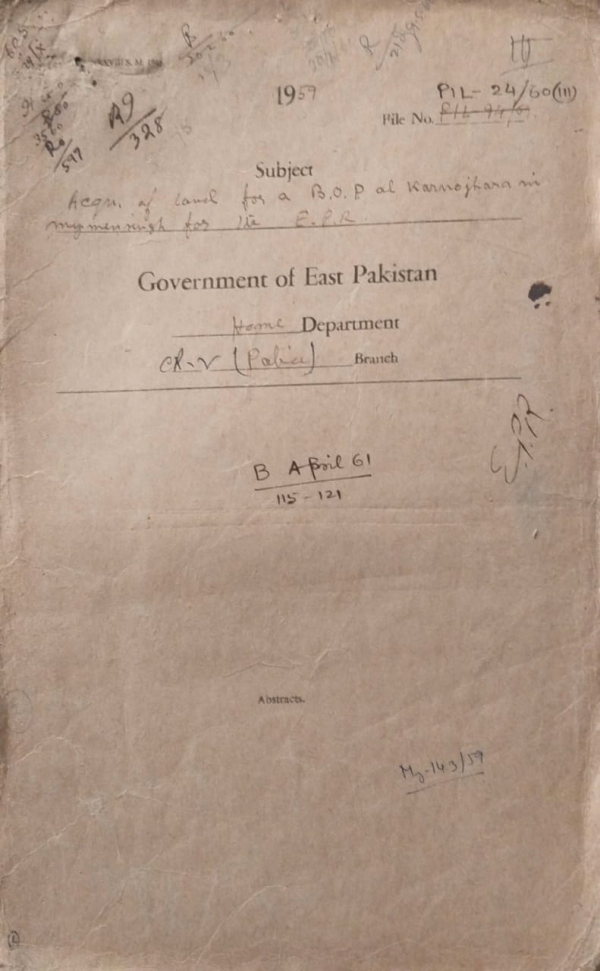 III
1959
PIL-24/60(III)
File No.
R9
328
597
Subject
Acqn. of land for a B.O.P at Karnojhara in
mymensingh for the E.P.R.
Government of East Pakistan
Home Department
CR-V (Police) Branch
E.P.R.
B April 61
115-121
Abstracts.
My-143/59